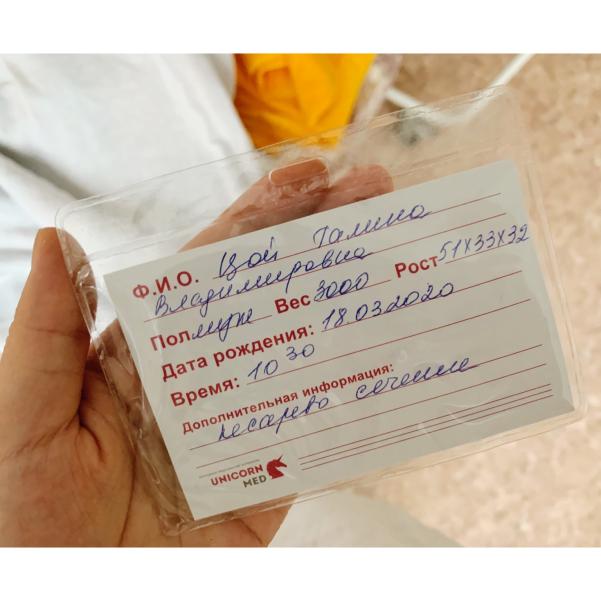 Ф.И.О. Цой Галина
Владимировна
Пол муж Вес 3000 Рост 51х33х32
Дата рождения: 18 03 2020
Время: 10 30
Дополнительная информация:
кесарево сечение
UNICORN
MED